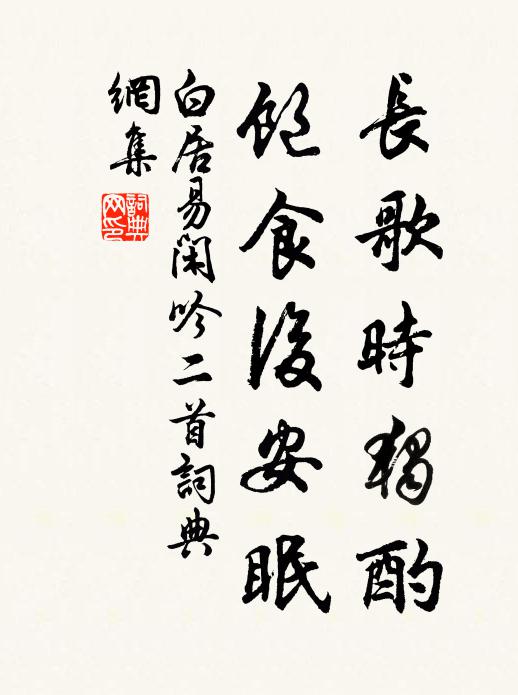 長歌時獨酌
飽食後安眠
白居易閑吟二首詞典
網集
詞典
网印